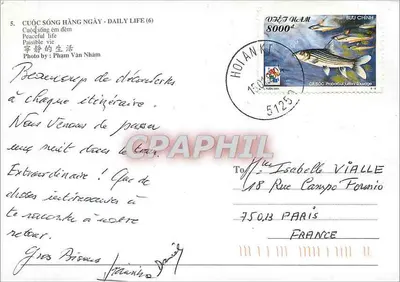 5. CUỘC SỐNG HÀNG NGÀY - DAILY LIFE (6)
Cuộc sống êm đềm
Peaceful life
Paisible vie
寧靜的生活
Photo by : Phạm Văn Nhâm
Beaucoup de
à chaque itinéraire.
Nous venons de passer
une nuit dans le
Extraordinaire ! Que de
choses intéressantes à
te raconter à notre
retour.
Gros Bisous
VIỆT NAM
8000đ
BƯU CHÍNH
HOI AN
51253
CPAPHIL
To
Mme Isabelle VIALLE
18 Rue Campo Formio
75013 PARIS
FRANCE